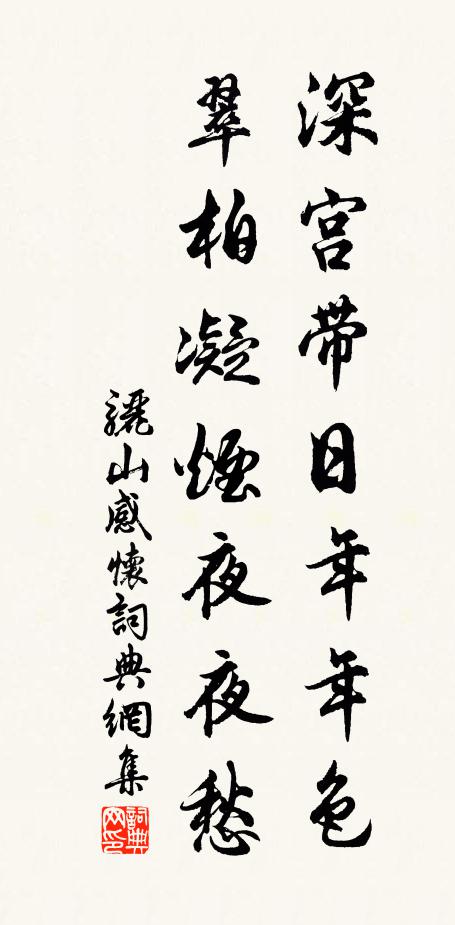 深宫带日年年色
翠柏凝煙夜夜愁
驪山感懷詞典網集
詞典
网印